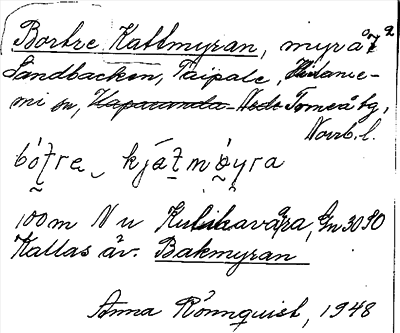 Bortre Kattmyran, myr
Sandbacken, Taipale, Hietanie-
mi sn, Haparanda Neder Torneå tg,
Norrb. l.
bó̤tre kjátmöyra
100 m N u Kukkavaara, Gn 3080
Kallas äv. Bakmyran
Anna Rönnquist, 1948